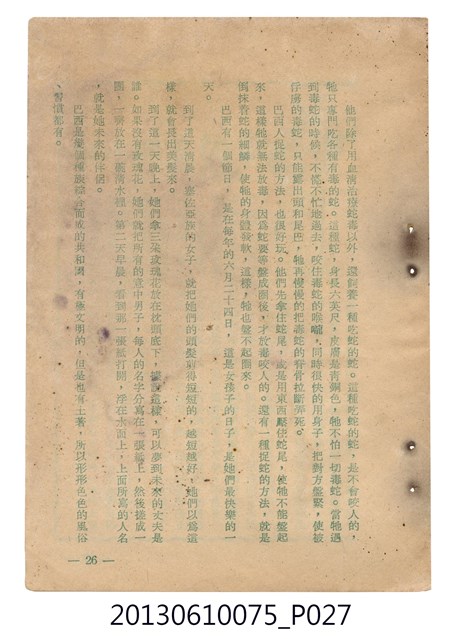 他們除了用血清治療蛇毒以外，還飼養一種吃蛇的蛇。這種吃蛇的蛇，是不會咬人的，
牠只專門吃各種有毒的蛇。這種蛇，身長六英尺，皮膚是青銅色，牠不怕一切毒蛇。當牠遇
到毒蛇的時候，不慌不忙地過去，咬住毒蛇的喉嚨，同時很快的用身子，把對方盤緊，使被
俘虜的毒蛇，只能露出頭和尾巴，牠再慢慢的把毒蛇的脊骨拉斷弄死。
巴西人捉蛇的方法，也很好玩。他們先拿住蛇尾，或是用東西壓住蛇尾，使牠不能盤起
來，這樣牠就無法放毒，因爲蛇要等盤成團後，才放毒咬人的。還有一種捉蛇的方法，就是
倒抹着蛇的細鱗，使牠的身體發軟，這樣，牠也盤不起團來。
巴西有一個節日，是在每年的六月二十四日，這是女孩子的日子，是她們最快樂的一
天。
到了這天淸晨，塞佐亞族的女子，就把她們的頭髮剪得短短的，越短越好，她們以爲這
樣，就會長出美髮來。
到了這一天晚上，她們拿三朵玫瑰花放在枕頭底下，據說這樣，可以夢到未來的丈夫是
誰。如果沒有玫瑰花，她們就把所有的意中男子，每人的名字分寫在一張紙上，然後搓成一
團，一齊放在一盃淸水裡。第二天早晨，看到那一張紙打開，浮在水面上，上面所寫的人名
，就是她未來的伴侶。
巴西是幾個種族綜合而成的共和國，有極文明的，但是也有土著，所以形形色色的風俗
、習慣都有。
— 26 —
20130610075_P027